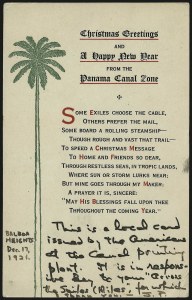 Christmas Greetings
AND
A Happy New Year
FROM THE
Panama Canal Zone
SOME EXILES CHOOSE THE CABLE,
OTHERS PREFER THE MAIL,
SOME BOARD A ROLLING STEAMSHIP—
THOUGH ROUGH AND VAST THAT TRAIL—
TO SPEED A CHRISTMAS MESSAGE
TO HOME AND FRIENDS SO DEAR,
THROUGH RESTLESS SEAS, IN TROPIC LANDS,
WHERE SUN OR STORM LURKS NEAR;
BUT MINE GOES THROUGH MY MAKER:
A PRAYER IT IS, SINCERE:
"MAY HIS BLESSINGS FALL UPON THEE
THROUGHOUT THE COMING YEAR."
BALBOA
HEIGHTS
Dec. 17,
1921.
This is a local card
issued by the Americans
at the Canal printing
plant. It is in response
to your
"Smiles" for which
THANK YOU.